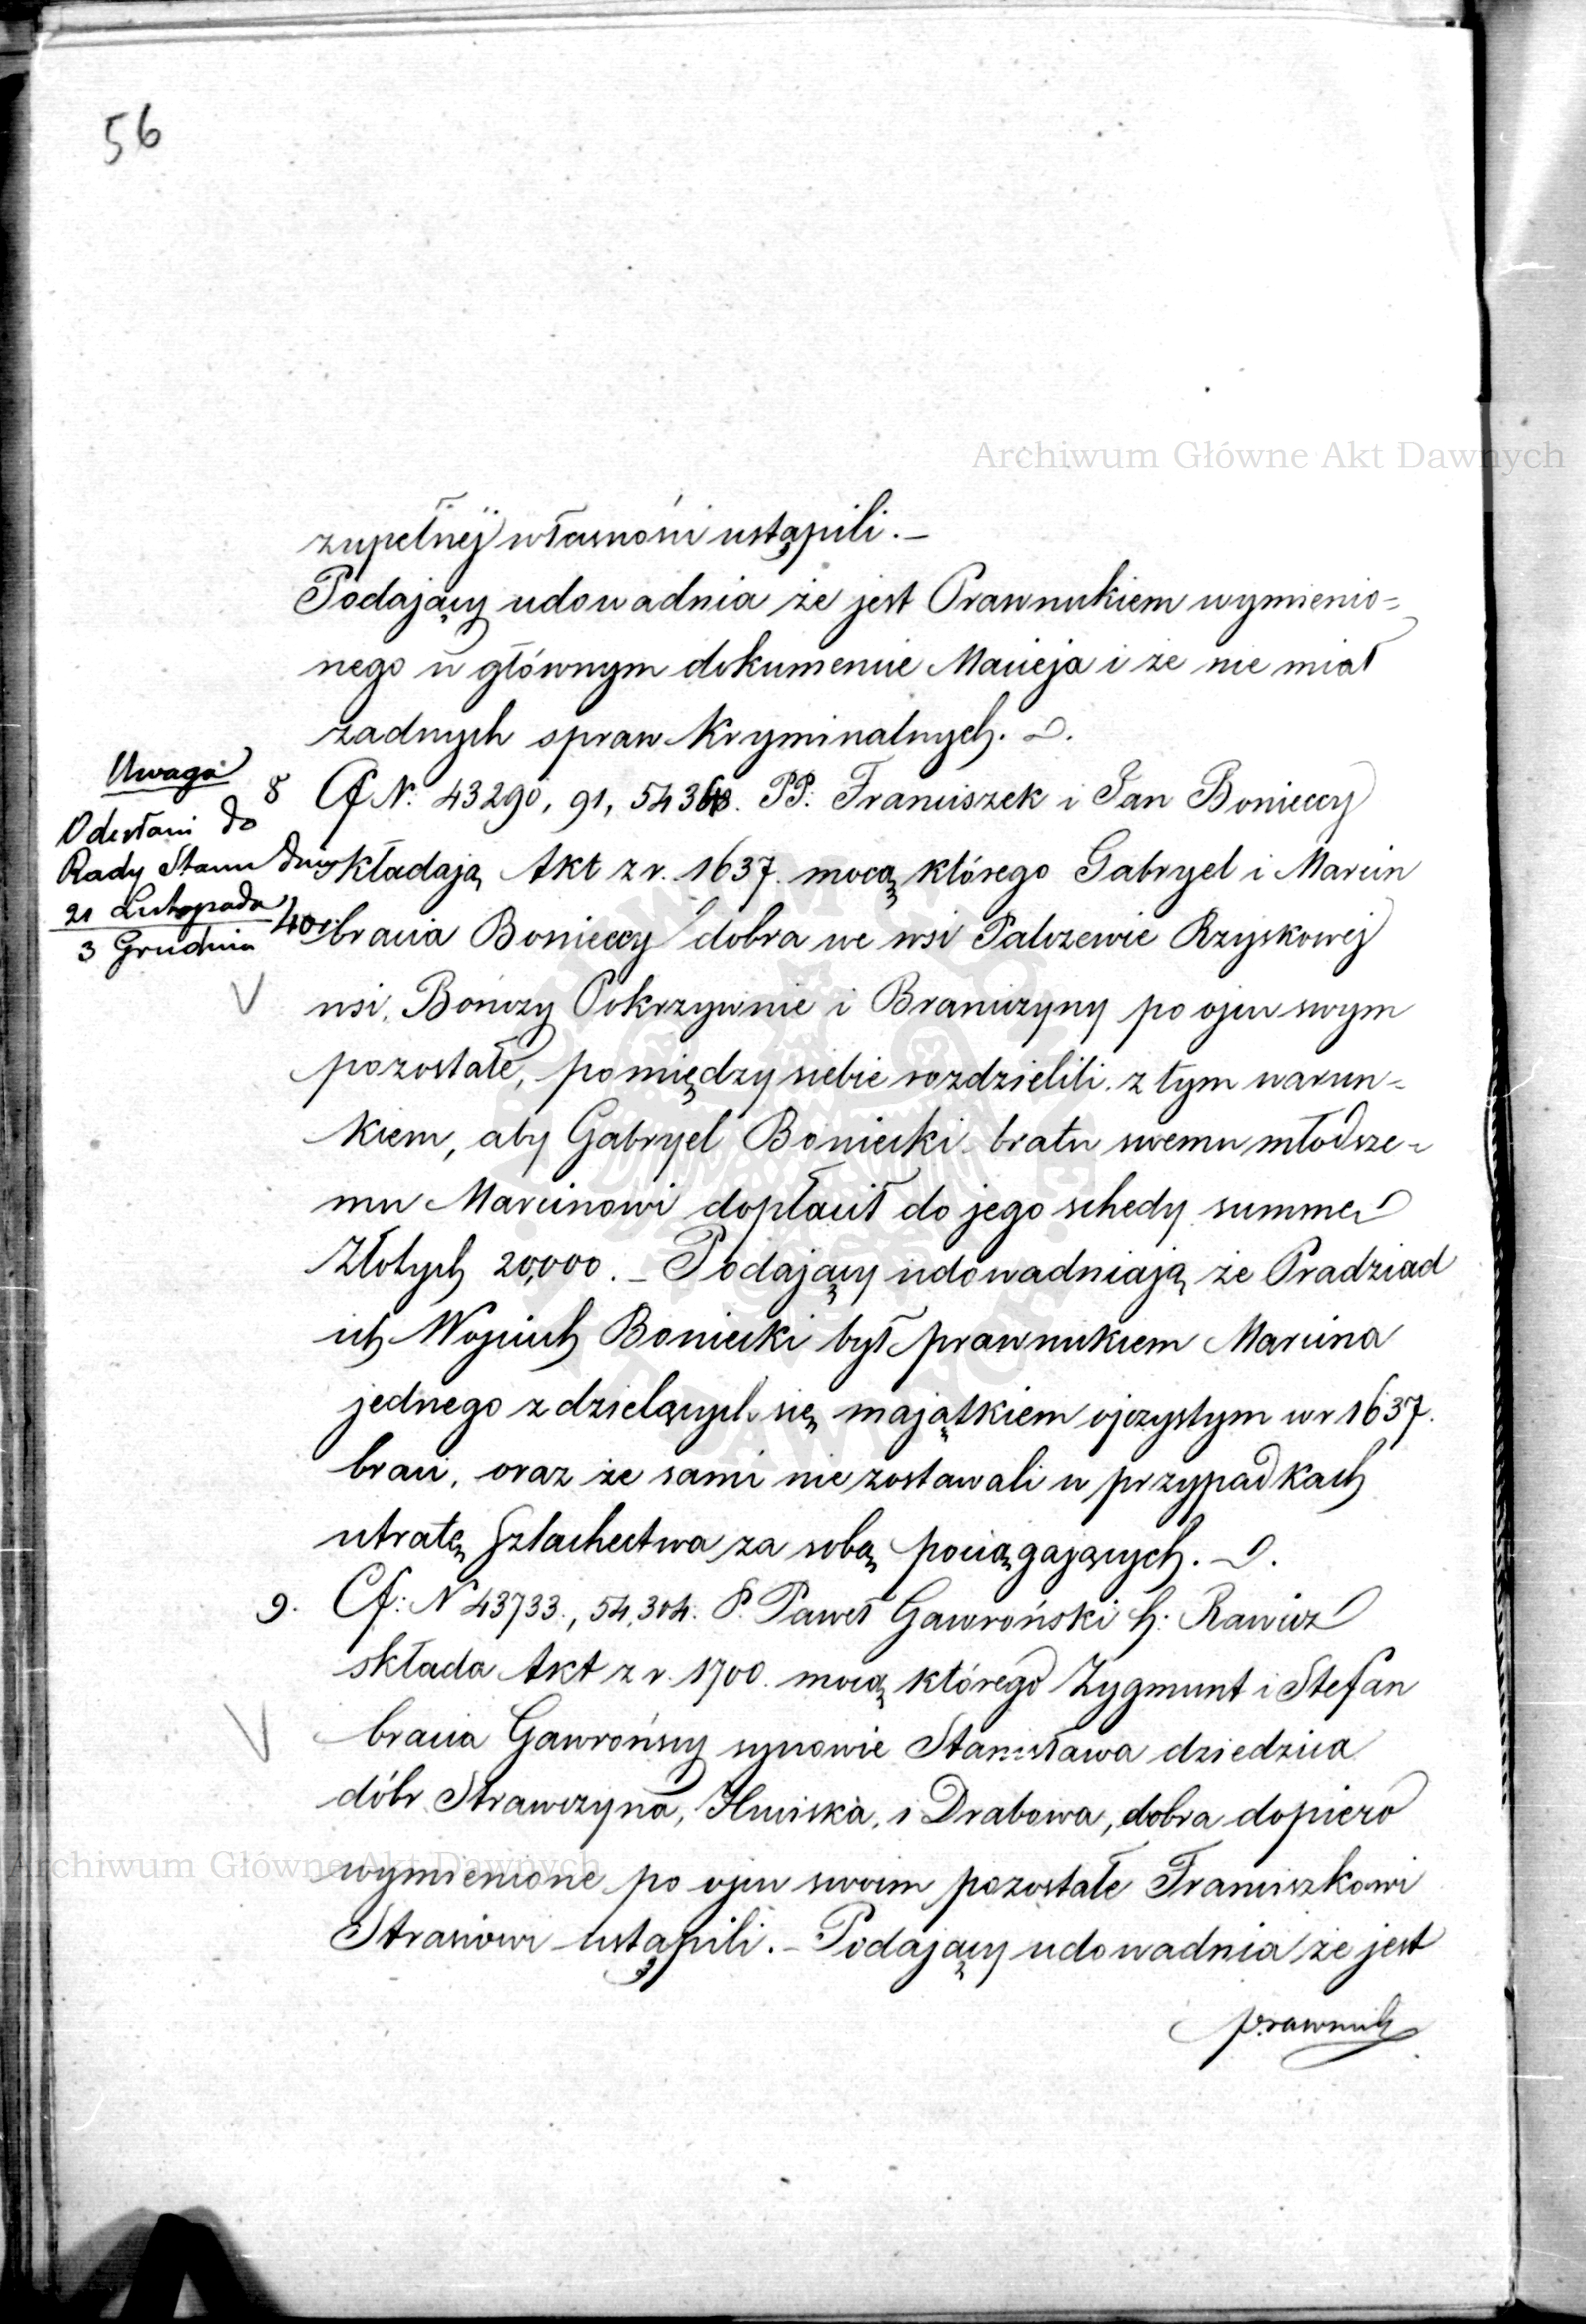 56
Archiwum Główne Akt Dawnych
zupełnéj własności ustąpili. —
Podający udowadnia że jest Prawnukiem wymienio=
nego w głównym dokumencie Macieja i że nie miał
żadnych spraw Kryminalnych.
Uwaga
Odesłani do
Rady Stanu dnia
21 Listopada
3 Grudnia 40 r.
8 Cf N: 43290, 91, PP. Franciszek i Jan Bonieccy
składają Akt z r. 1637. mocą którego Gabryel i Marcin
bracia Bonieccy dobra we wsi Palczewie Rzyskowej
wsi, Bończy Pokrzywnie i Braniczyny po ojcu swym
pozostałe, pomiędzy siebie rozdzielili z tym warun=
kiem, aby Gabryel Boniecki bratu swemu młodsze=
mu Marcinowi dopłacił do jego schedy summę
Złotych 20,000. — Podający udowadniają że Pradziad
ich Wojciech Boniecki był prawnukiem Marcina
jednego z dzielących się majątkiem ojczystym w r 1637.
braci, oraz że sami nie zostawali w przypadkach
utratę Szlachectwa za sobą pociągających.
9. Cf: N 43733., 54,304. P. Paweł Gawroński h: Rawicz
składa Akt z r. 1700. mocą którego Zygmunt i Stefan
bracia Gawrońscy synowie Stanisława dziedzica
dóbr Strawczyna, i Drabowa, dobra dopiero
Archiwum Główne Akt Dawnych
wymienione po ojcu swoim pozostałe Franciszkowi
ustąpili. — Podający udowadnia że jest
prawnuk